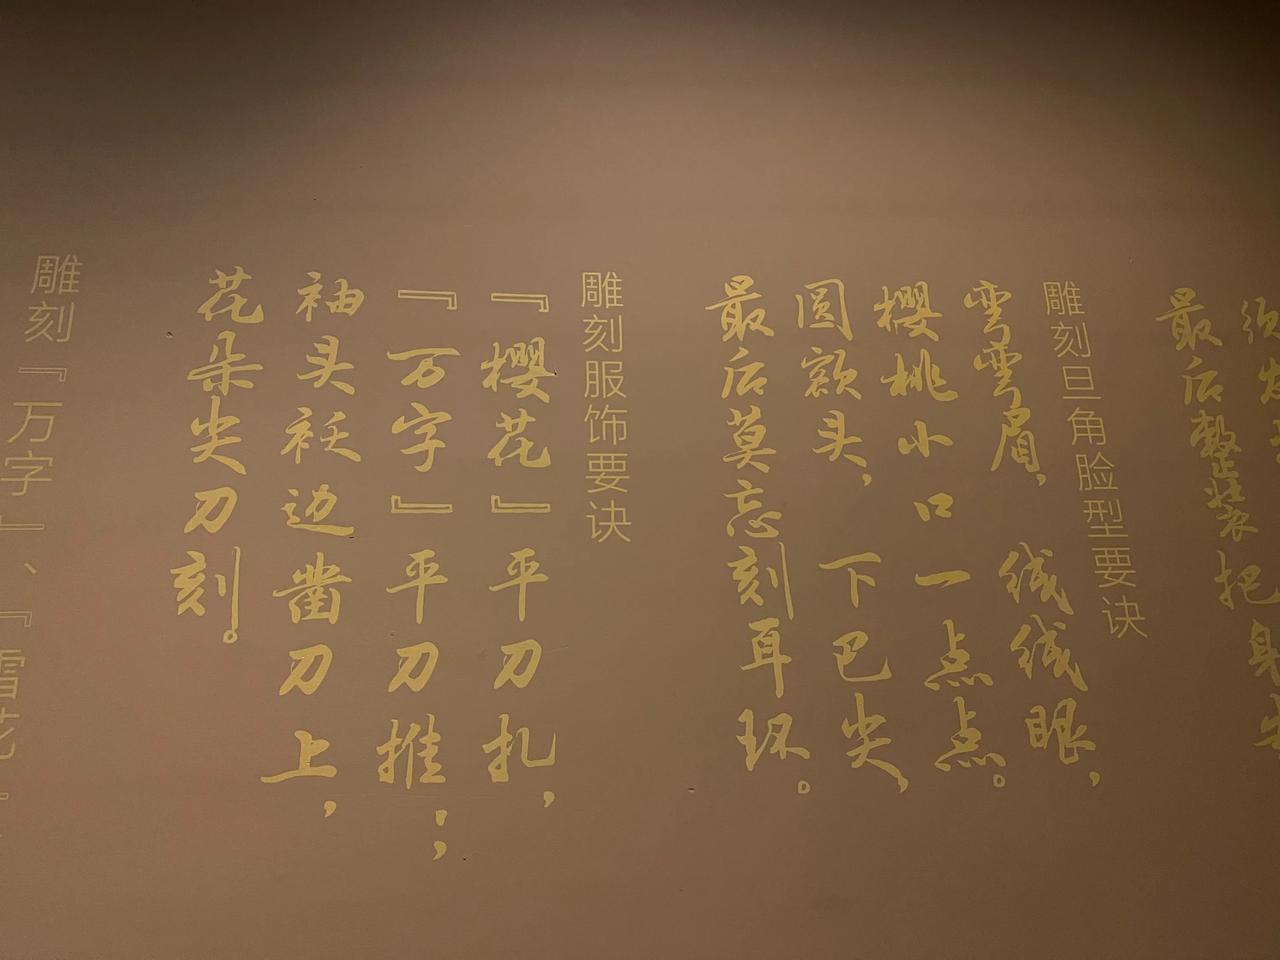 最后整装把身
雕刻旦角脸型要诀
弯弯眉，线线眼，
樱桃小口一点点。
圆额头，下巴尖，
最后莫忘刻耳环。
雕刻服饰要诀
『樱花』平刀扎，
『万字』平刀推；
袖头袄边凿刀上，
花朵尖刀刻。
雕刻『万字』、『雪花』